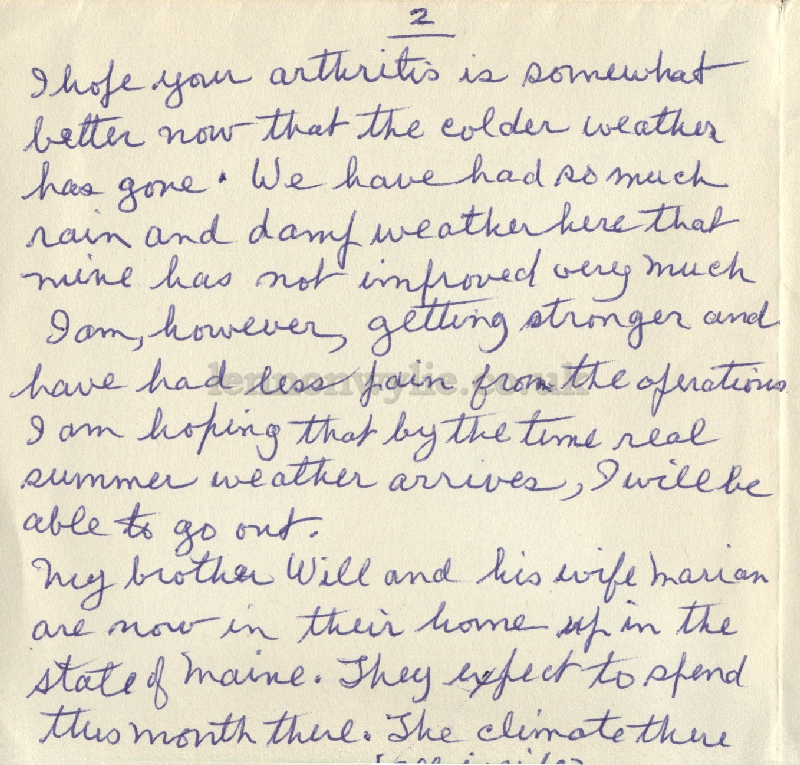 2
I hope your arthritis is somewhat
better now that the colder weather
has gone. We have had so much
rain and damp weather here that
mine has not improved very much
I am, however, getting stronger and
have had less pain from the operations
lennonwylie.co.uk
I am hoping that by the time real
summer weather arrives, I will be
able to go out.
My brother Will and his wife Marian
are now in their home up in the
state of Maine. They expect to spend
this month there. The climate there